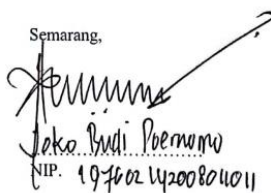 Semarang,
Joko Budi Poernomo
NIP. 197602142008011011